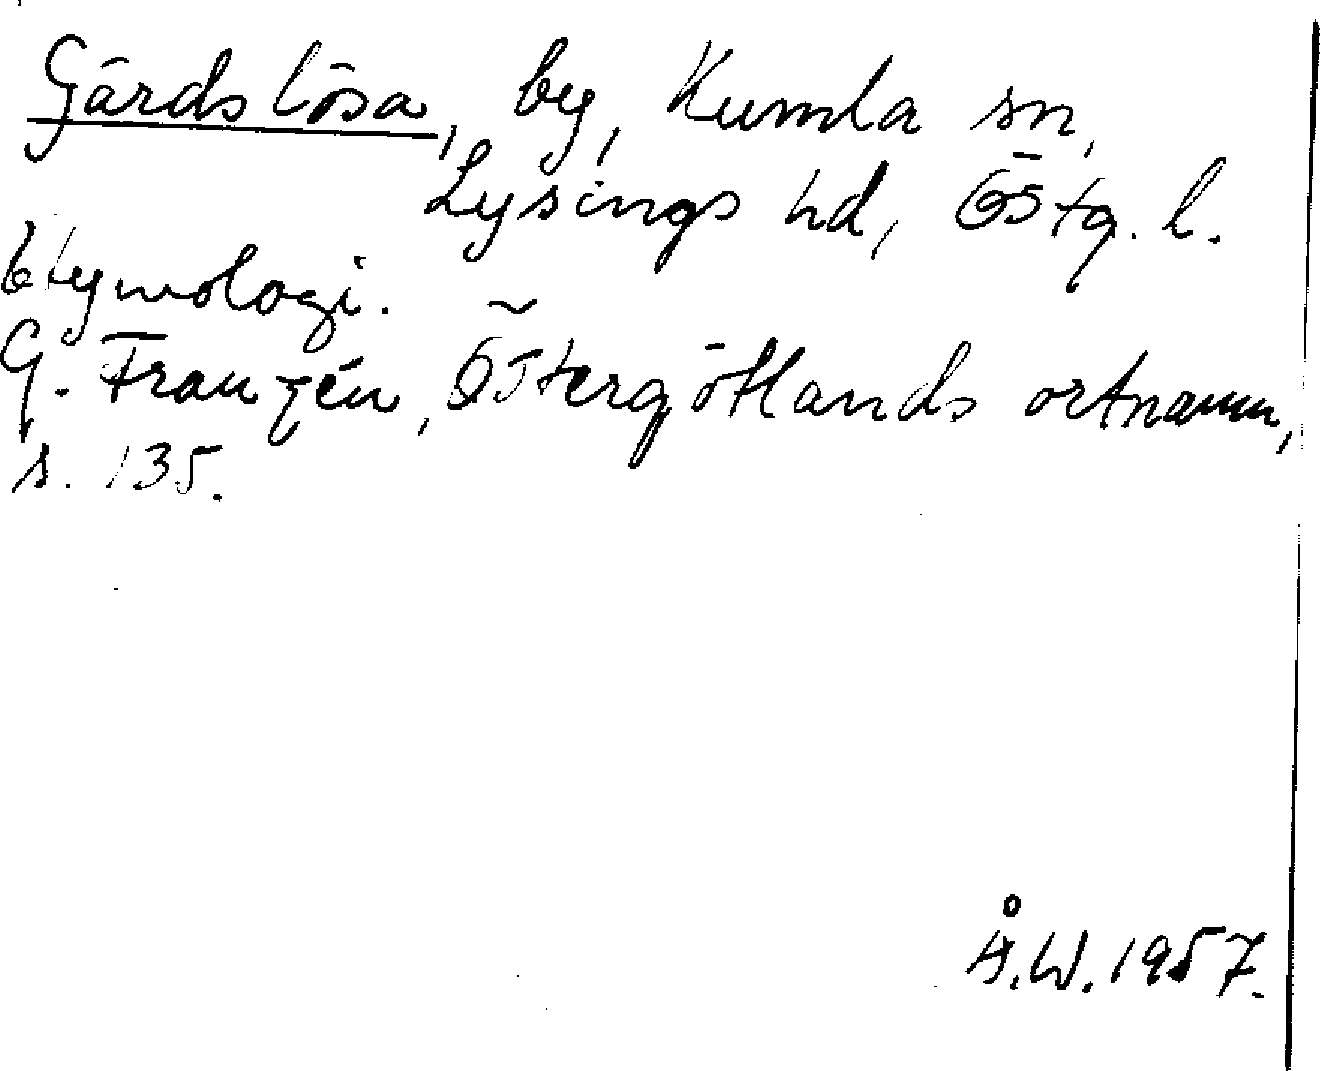 Gärdslösa, by, Kumla sn,
Lysings hd, Östg. l.
Etymologi.
G. Franzén, Östergötlands ortnamn,
s. 135.
Å.W. 1957.